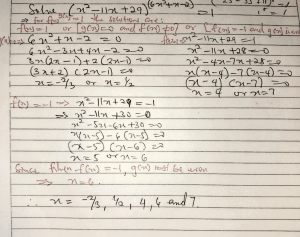 Solve (x²-11x+29)^(6x²+x-2) = 1
⇒ For f(x)^g(x) = 1 the solutions are:
f(x)=1 or g(x)=0 and f(x)≠0 or f(x)=-1 and g(x) is even
6x²+x-2=0
6x²-3x+4x-2=0
3x(2x-1)+2(2x-1)=0
(3x+2)(2x-1)=0
x=-2/3 or x=1/2
f(x)=1 x²-11x+29=1
x²-11x+28=0
x²-4x-7x+28=0
x(x-4)-7(x-4)=0
(x-4)(x-7)=0
x=4 or x=7
f(x)=-1 ⇒ x²-11x+29=-1
⇒ x²-11x+30=0
x²-5x-6x+30=0
x(x-5)-6(x-5)=0
(x-5)(x-6)=0
x=5 or x=6
Since f(x)=-1, g(x) must be even
⇒ x=6.
∴ x = -2/3, 1/2, 4, 6 and 7.